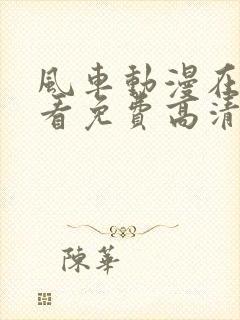 風車動漫在
看免費高清
陳華